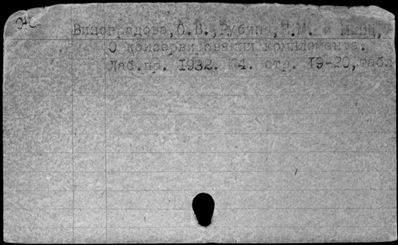 Виноградова, О.В., Рубина, Р.М. и
О консервировании комплемента.
Лаб.пр. 1932. №4. стр. 19-20, табл